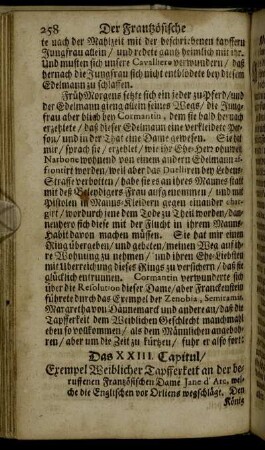 258 Der Frantzösische
te nach der Mahlzeit mit der beschriebenen tapffern
Jungfrau allein / und redete gantz heimlich mit ihr.
Und musten sich unsere Cavalliers verwundern / daß
hernach die Jungfrau sich nicht entblödete bey diesem
Edelmann zu schlaffen.
Früh Morgens setzte sich ein jeder zu Pferd / und
der Edelmann gieng allein seines Wegs / die Jung-
frau aber blieb bey Cormantin, dem sie bald hernach
erzehlete / daß dieser Edelmann eine verkleidete Per-
son / und in der That eine Dame gewesen. Sie hat
mir / sprach sie / erzehlet / wie ihr Ehe-Herr
Narbonne wohnend von einem andern Edelmann af-
frontiert worden / weil aber das Duelliren bey Lebens-
Straffe verbotten / habe sie es an ihres Mannes statt
mit des Beleydigers Frau auffgenommen / und mit
Pistolen in Manns-Kleidern gegen einander
girt / wordurch jene dem Tode zu Theil worden / dan-
nenhero sich diese mit der Flucht in ihrem Manns-
Habit davon machen müssen. Sie hat mir einen
Ring übergeben / und gebeten / meinen Weg auff ih-
re Wohnung zu nehmen / und ihren Ehe-Liebsten
mit Uberreichung dieses Rings zu versichern / daß sie
glücklich entrunnen. Cormantin verwunderte sich
über die Resolution dieser Dame / aber Franckenstein
führete durch das Exempel der Zenobia, Semiramis,
Margretha von Dännemarck und anderer an / daß die
Tapfferkeit dem Weiblichen Geschlecht manchmahl
eben so vollkommen / als dem Männlichen angeboh-
ren / aber um die Zeit zu kürtzen / fuhr er also fort:
Das XXIII. Capitul /
Exempel Weiblicher Tapfferkeit an der be-
ruffenen Frantzösischen Dame Jane d'Arc, wel-
che die Englischen vor Orliens wegschlägt. Den
König